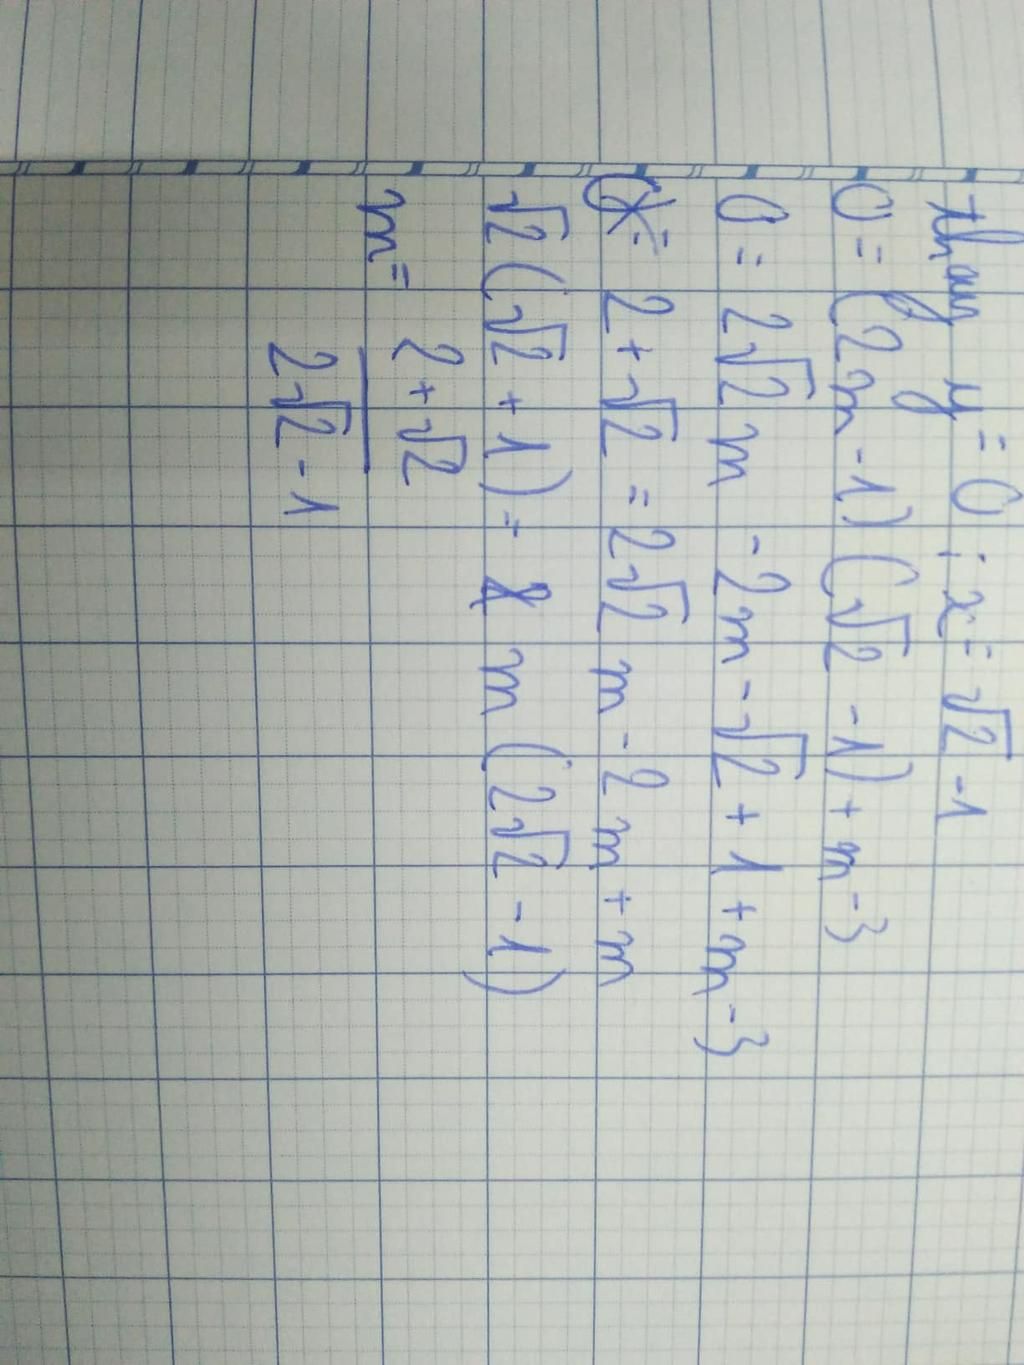 thay y = 0 ; x = √2 - 1
0 = (2m - 1)(√2 - 1) + m - 3
0 = 2√2 m - 2m - √2 + 1 + m - 3
2 + √2 = 2√2 m - 2m + m
√2 (√2 + 1) = m (2√2 - 1)
m = (2 + √2)/(2√2 - 1)